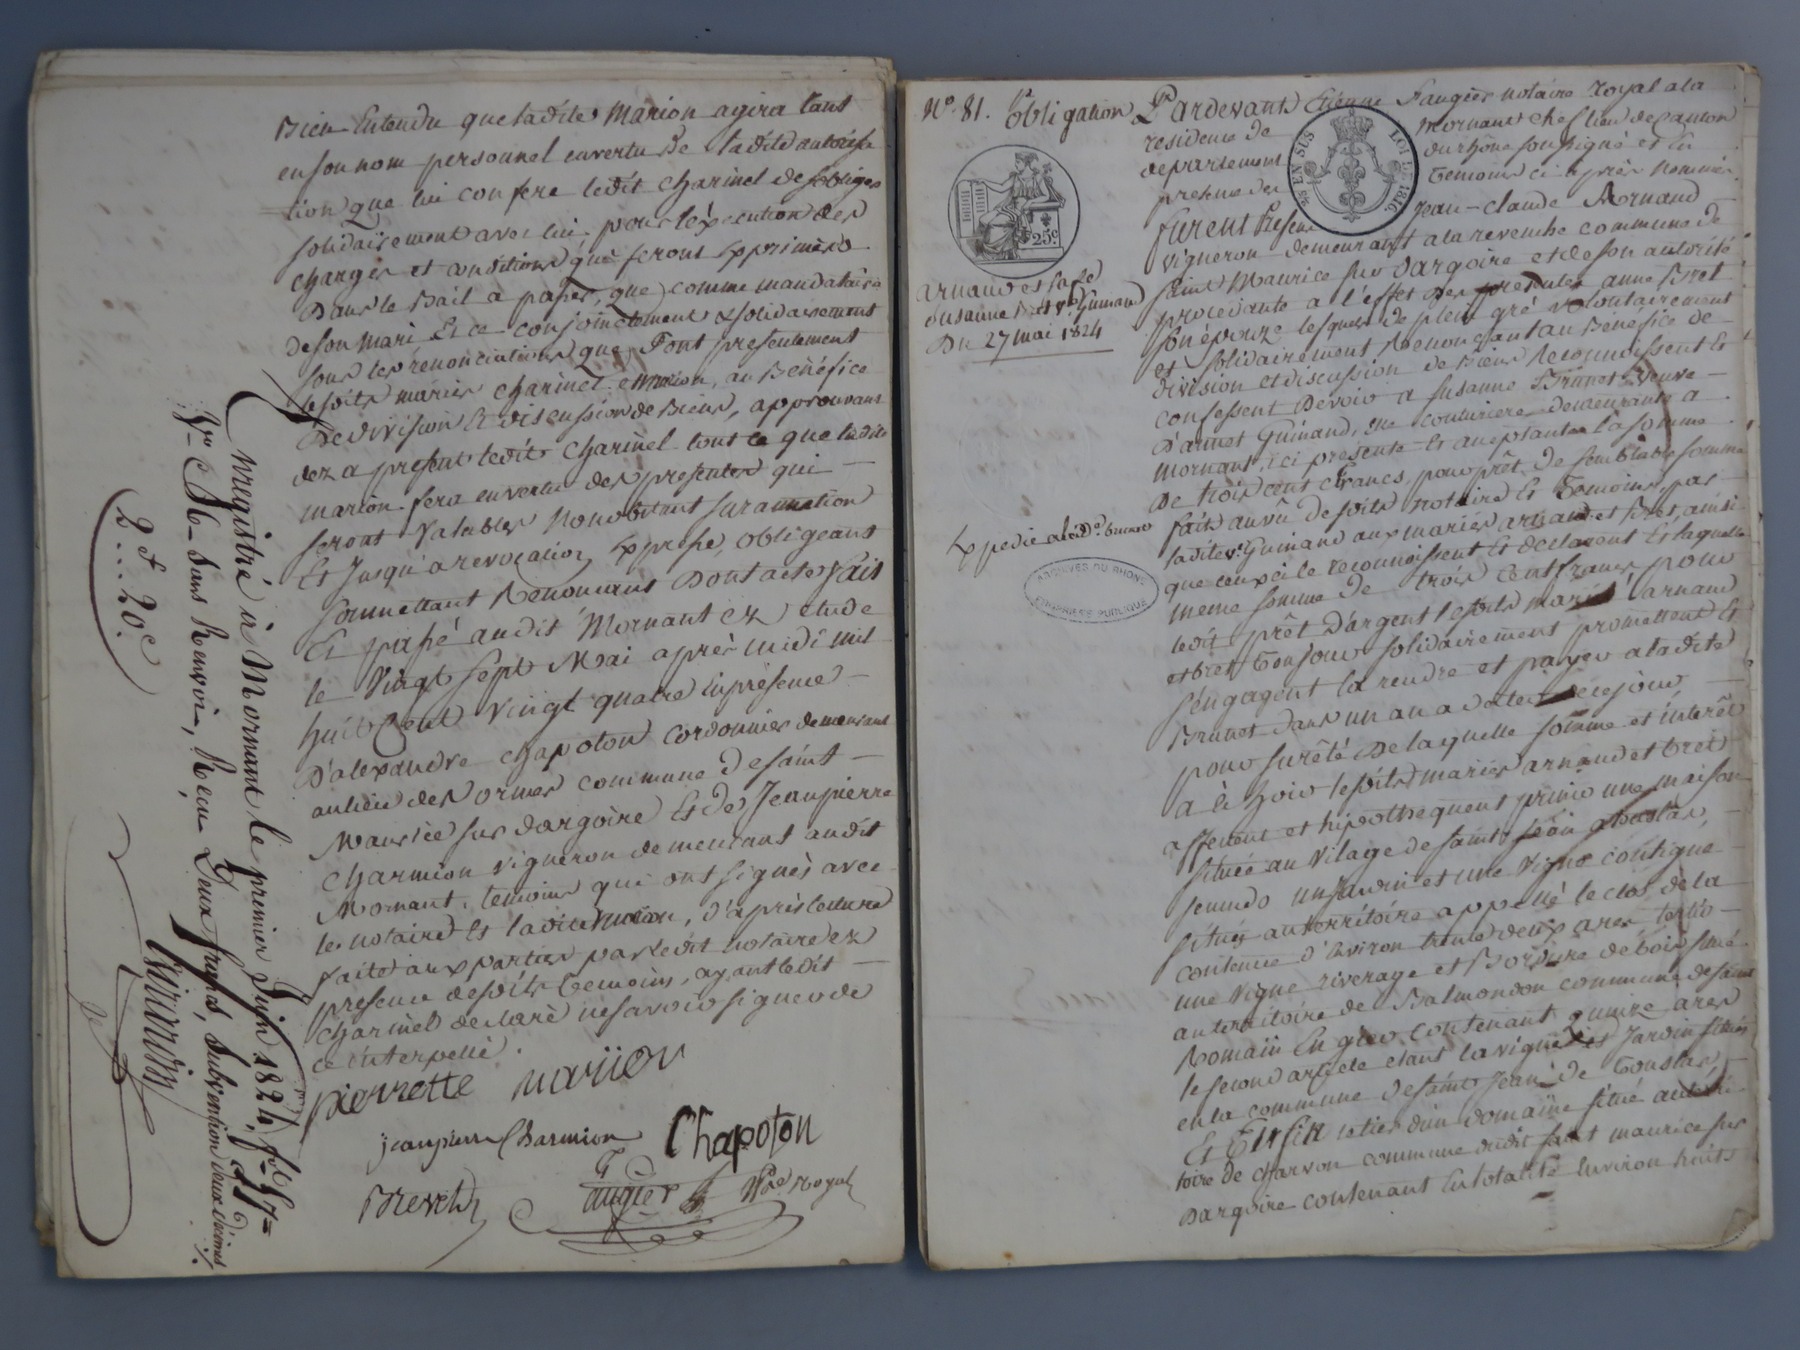 Bien Entendu que ladite Marion agira tant
en son nom personnel en vertu de ladite autorisa
tion que lui confere ledit Charinel de sobliger
solidairement avec lui pour l'éxécution des
charges et conditions qui seront Exprimées
Dans le Bail a passer, que comme mandataire
de son mari Et ce conjoinctement & solidairement
sous les renonciations que font presentement
lesdits mariés Charinel et Marion, au Bénéfice
De division Et discussion de Biens, approuvant
dez a present ledit Charinel tout ce que ladite
Marion fera en vertu des presentes qui
seront Valables nonobstant surannation
Et Jusqu'a revocation Expresse, obligeant
soumettant Renonçant Dont acte fait
Et passé audit Mornant ez etude
le Vingt sept Mai après midi mil
huit Cent Vingt quatre En présence
D'alexandre Chapoton Cordonnier demeurant
au lieu des ormes commune de saint
Maurice sur dargoire Et de Jean pierre
Charmion vigneron demeurant audit
Mornant, temoins qui ont signés avec
le notaire Et ladite Marion, D'après lecture
faite aux parties par ledit notaire ez
presence desdits temoins, ayant ledit
Charinel declaré ne savoir signer de
ce interpellé.
pierrette mariion
jean pierre Charmion Chapoton
Brevet
faugier Nre Royal
Enregistré à Mornant le premier Juin 1824, fol. 57
Vo C 6 Sans Renvoi, Reçu Deux francs, Subvention deux décimes
2 f 20 c
No. 81. Obligation Pardevant Etienne Faugier notaire Royal a la
residence de Mornant chef lieu de canton
departement du rhône soussigné et En
presence des temoins ci après nommés
furent Presens Jean-Claude Arnaud
vigneron demeurant a la revenche commune de
saint Maurice sur Dargoire et de son autorité
procedante a l'effet des presentes anne Bret
son épouse lesquels de plein gré volontairement
et solidairement Renonçant au Bénéfice de
division et discussion de Biens Reconnoissent Et
confessent Devoir a Susanne Brunet Veuve
D'annet Guinand, couturiere demeurante a
Mornant, ici presente Et acceptante la somme
De trois cent Francs, pour prêt de semblable somme
fait au vû desdits notaire Et temoins, par
ladite Ve Guinand aux mariés arnaud et Bret, ainsi
que ceux ci le reconnoissent Et declarent Et laquelle
meme somme de trois cent francs pour
ledit prêt D'argent lesdits mariés arnaud
et bret toujours solidairement promettent Et
s'engagent la rendre et payer a ladite
Brunet dans un an a dater de ce jour
pour surêté De laquelle somme et intérêt
a Echoir lesdits mariés arnaud et bret
affectent et hipothequent primo une maison
située au Village de saint Jean atouslas,
secundo un Jardin et une Vigne contigue
située au territoire appellé le clos de la
contenue d'Environ trente deux ares tertio
une Vigne riverage et Bordure de bois située
au territoire de Balmondon commune de saint
Romain En gier contenant quinze ares
le second article etant la vigne et Jardin situés
en la commune de saint Jean de Touslas,
Et Enfin le tiers d'un domaine situé au terri
toire de charvon commune dudit saint maurice sur
Dargoire contenant En totalité Environ huit
arnaud et sa fe
Susanne Vve Guinand
Du 27 mai 1824
Expedié
25c
EN SUS
LOI DE 1816
ARCHIVES DU RHÔNE
PROPRIÉTÉ PUBLIQUE